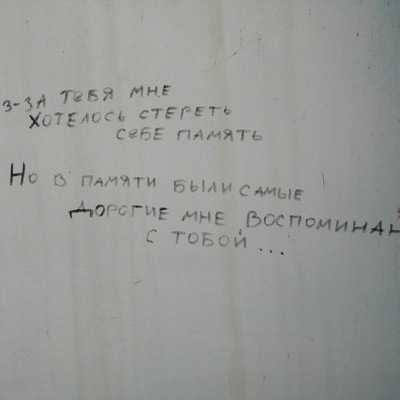 з-за тебя мне
хотелось стереть
себе память
Но в памяти были самые
дорогие мне воспоминан
с тобой ...